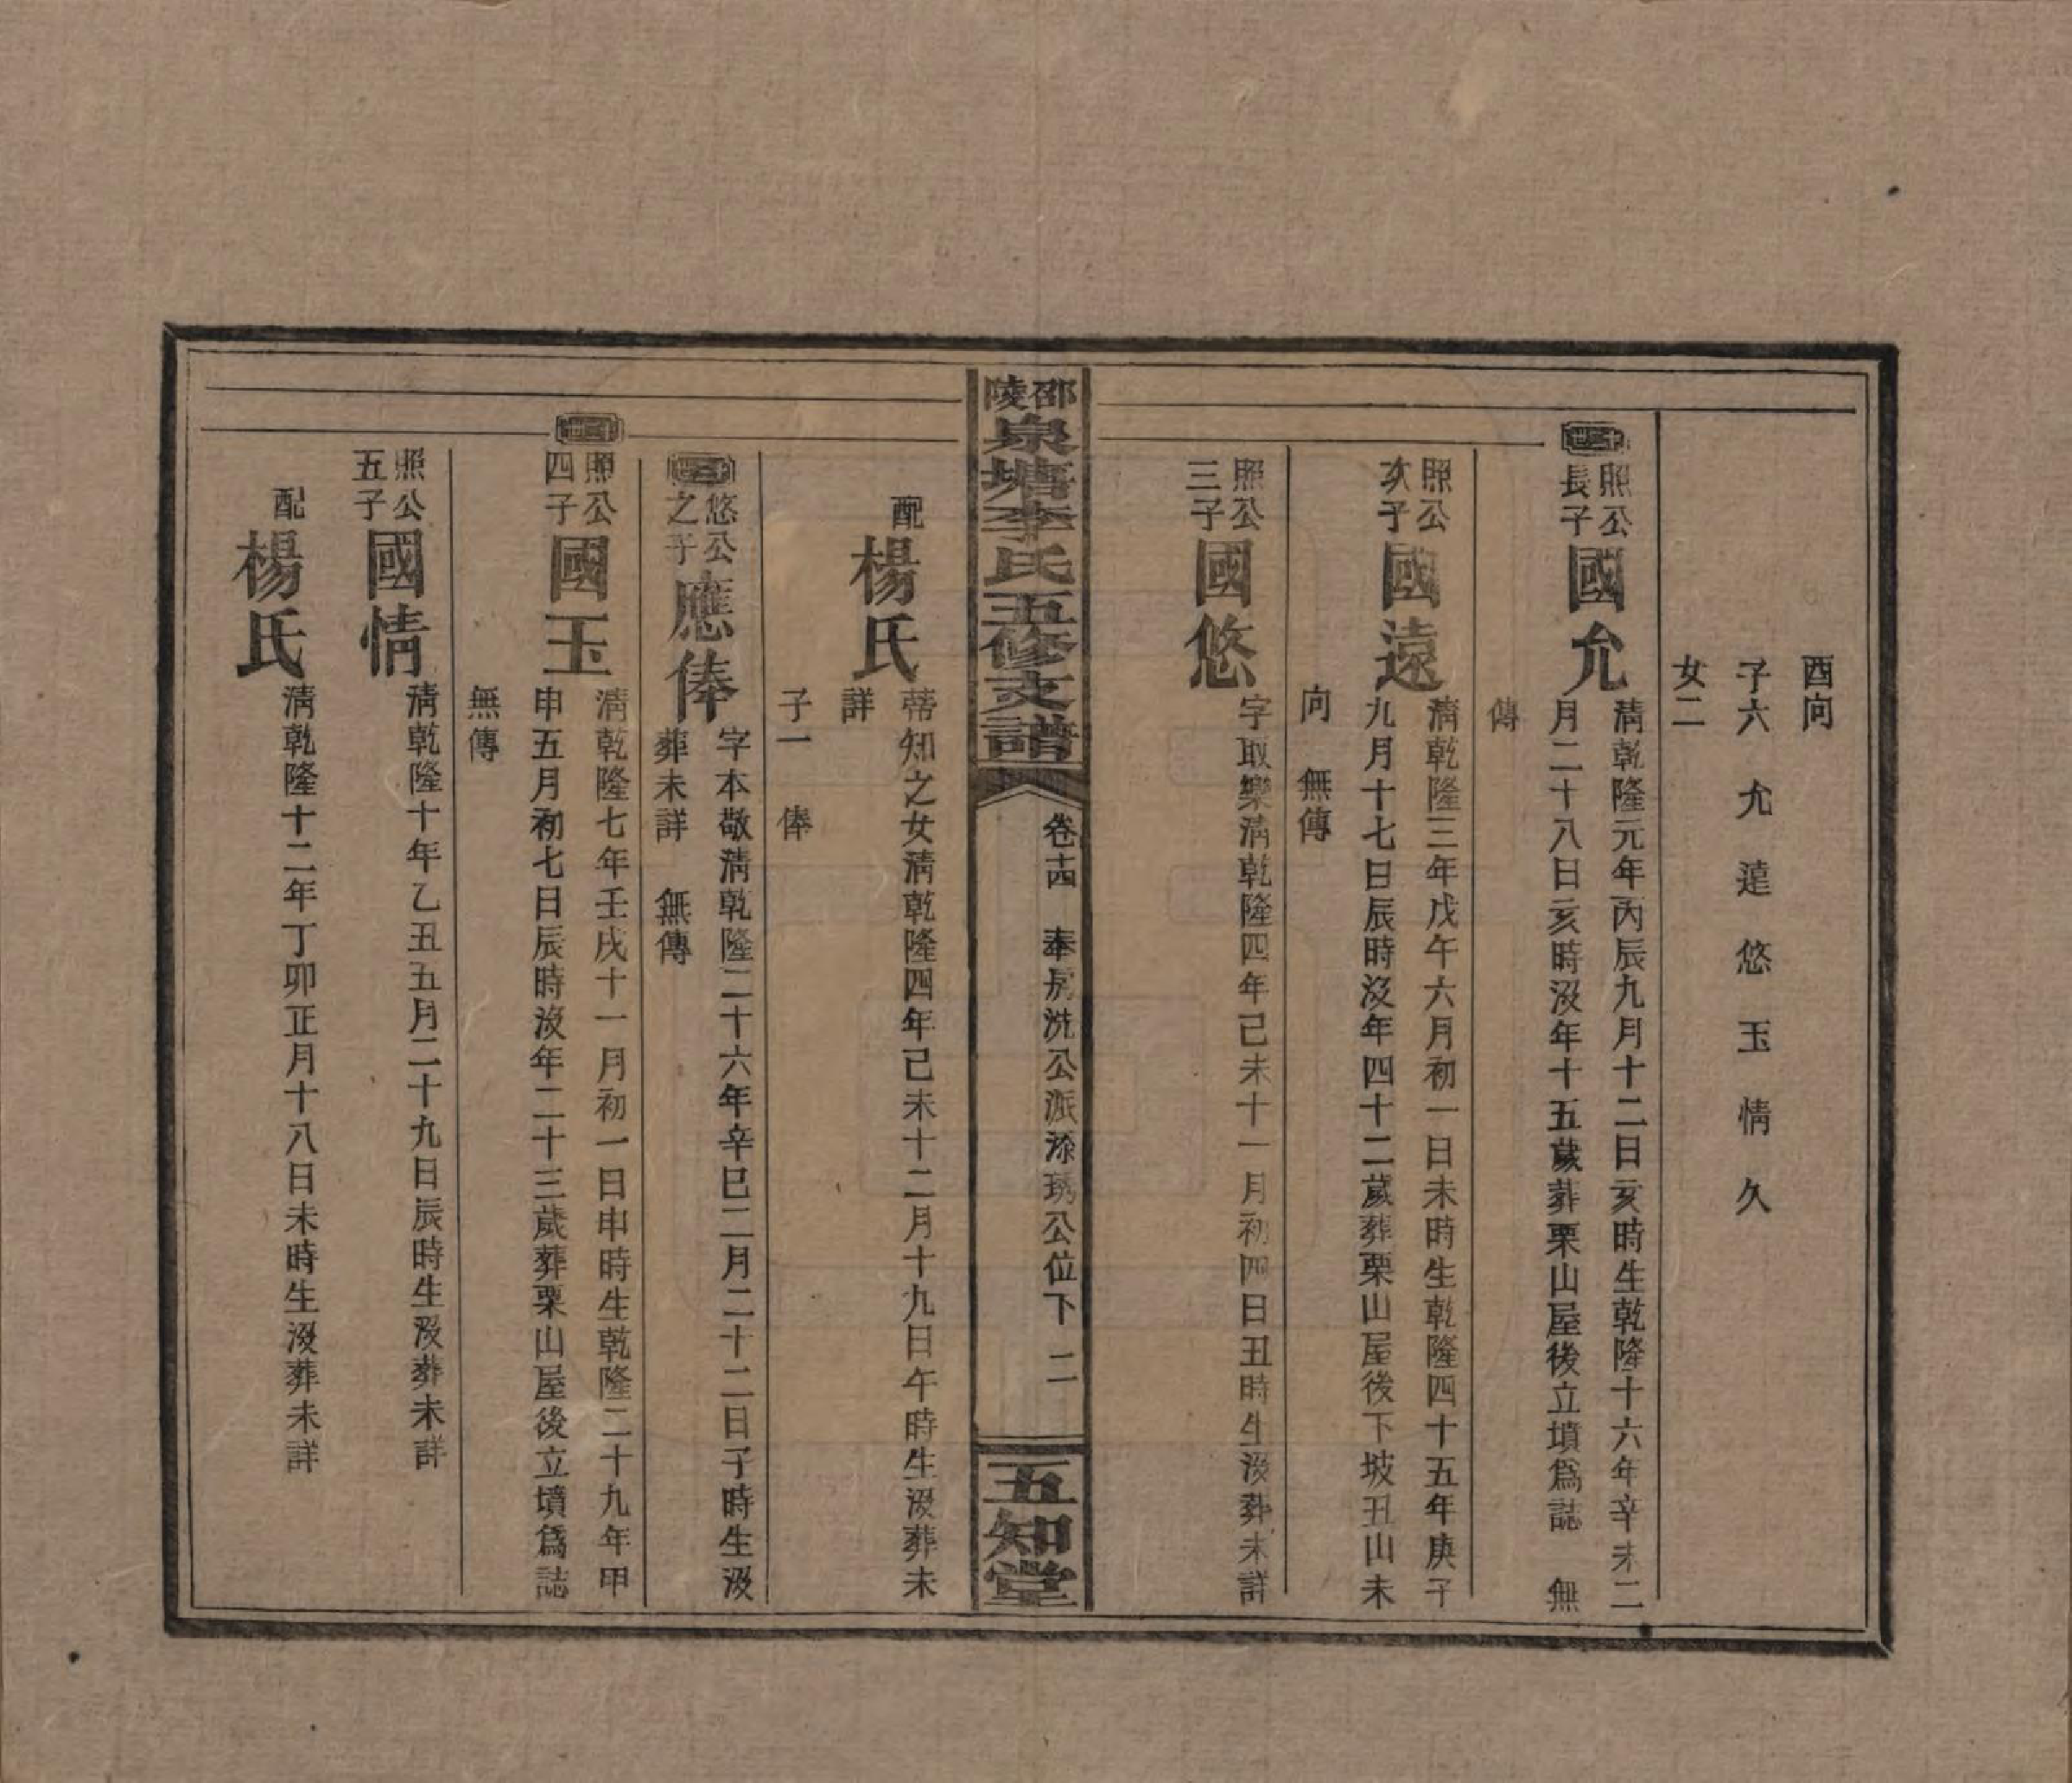 酉向
子六 允 遠 悠 玉 情 久
女二
照公長子 國允 清乾隆元年丙辰九月十二日亥時生乾隆十六年辛未二
月二十八日亥時沒年十五歲葬栗山屋後立墳爲誌 無
傳
照公次子 國遠 清乾隆三年戊午六月初一日未時生乾隆四十五年庚子
九月十七日辰時沒年四十二歲葬栗山屋後下坡丑山未
向 無傳
照公三子 國悠 字取樂清乾隆四年己未十一月初四日丑時生沒葬未詳
邵陵泉塘李氏五修支譜 卷十四 奉房洗公派添琇公位下 二 五知堂
配 楊氏 蒂知之女清乾隆四年己未十二月十九日午時生沒葬未
詳
子一 俸
悠公之子 應俸 字本敬清乾隆二十六年辛巳二月二十二日子時生沒
葬未詳 無傳
照公四子 國玉 清乾隆七年壬戌十一月初一日申時生乾隆二十九年甲
申五月初七日辰時沒年二十三歲葬栗山屋後立墳爲誌
無傳
照公五子 國情 清乾隆十年乙丑五月二十九日辰時生沒葬未詳
配 楊氏 清乾隆十二年丁卯正月十八日未時生沒葬未詳